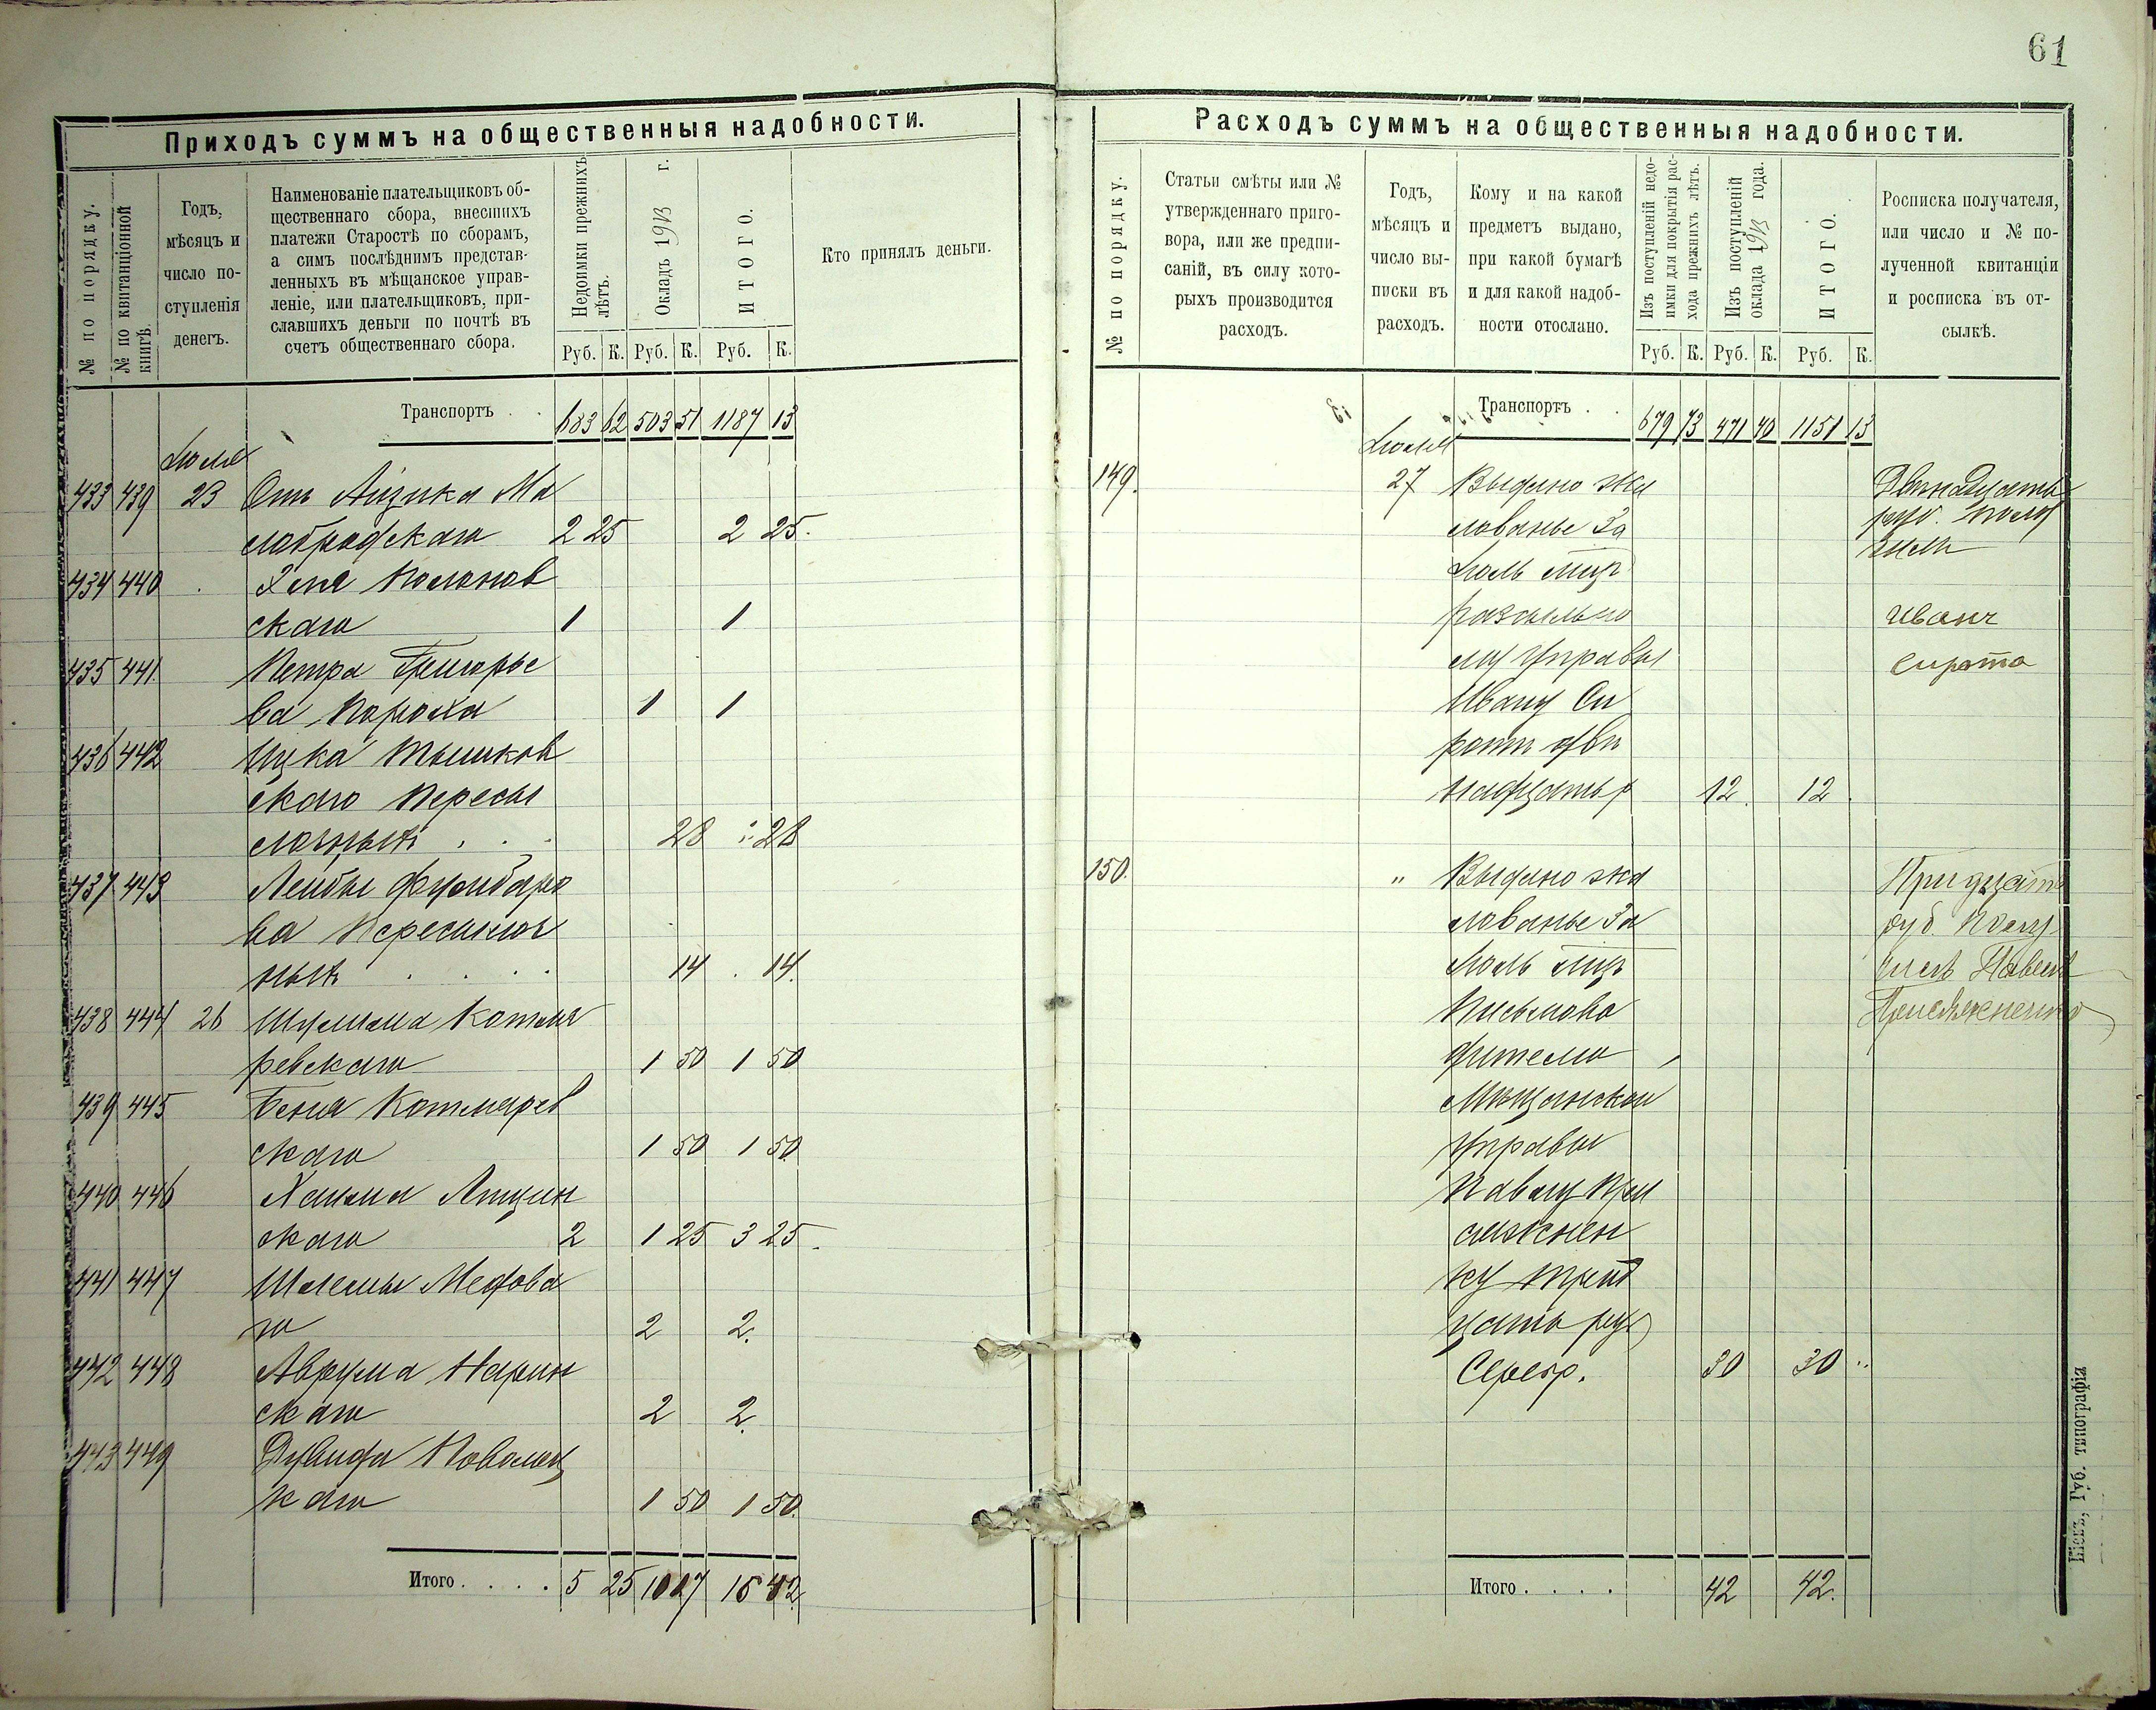 61
Приходъ суммъ на общественныя надобности.
№ по порядку.
№ по квитанціонной книгѣ.
Годъ, мѣсяцъ и число поступленія денегъ.
Наименованіе плательщиковъ об-
щественнаго сбора, внесшихъ
платежи Старостѣ по сборамъ,
а симъ послѣднимъ представ-
ленныхъ въ мѣщанское управ-
леніе, или плательщиковъ, при-
славшихъ деньги по почтѣ въ
счетъ общественнаго сбора.
Недоимки прежнихъ лѣтъ.
Окладъ 1913 г.
ИТОГО.
Кто принялъ деньги.
Руб. К. Руб. К. Руб. К.
Транспортъ . . 683 62 503 51 1187 13
Іюля
433 439 23 Отъ Айзика Ма
лобродскаго 2 25 2 25.
434 440 Хаима Полонов
скаго 1 1
435 441 Петра Григорье
ва Пороха 1 1
436 442 Ицка Тышков
скаго Пересы
лочныхъ . . . 28 28
437 443 Лейбы
ва Пересылоч
ныхъ . . . . 14 . 14.
438 444 26 Шулима Котля
ревскаго 1 50 1 50
439 445 Беня Котлярев
скаго 1 50 1 50
440 446 Хаима Лящин
скаго 2 1 25 3 25.
441 447 Шлемы Медова
го 2 2.
442 448 Аврума Нарин
скаго 2 2.
443 449 Дувида Поволоц
каго 1 50 1 50.
Итого . . . . 5 25 10 17 15 42
Расходъ суммъ на общественныя надобности.
№ по порядку.
Статьи смѣты или №
утвержденнаго приго-
вора, или же предпи-
саній, въ силу кото-
рыхъ производится
расходъ.
Годъ,
мѣсяцъ и
число вы-
писки въ
расходъ.
Кому и на какой
предметъ выдано,
при какой бумагѣ
и для какой надоб-
ности отослано.
Изъ поступленій недо-
имки для покрытія рас-
хода прежнихъ лѣтъ.
Изъ поступленій
оклада 1913 года.
ИТОГО.
Росписка получателя,
или число и № по-
лученной квитанціи
и росписка въ от-
сылкѣ.
Руб. К. Руб. К. Руб. К.
Транспортъ . . 679 73 471 40 1151 13
Іюля
149. 27 Выдано жа
лованье За
Іюль мѣц
разсыльно
му Управы
Ивану Си
ротѣ двѣ
надцать р 12. 12.
Двѣнадцать
руб. полу
чилъ
Иванъ
Сирота
150. " Выдано жа
лованье За
Іюль мѣц
Письмово
дителю
Мѣщанской
Управы
Павлу При
сяжнен
ку трид
цать руб
Серебр. 30 30 "
Тридцать
руб. Полу
чилъ Павелъ
Присяжненко
Итого . . . . 42 42.
Кіевъ, Губ. типографія